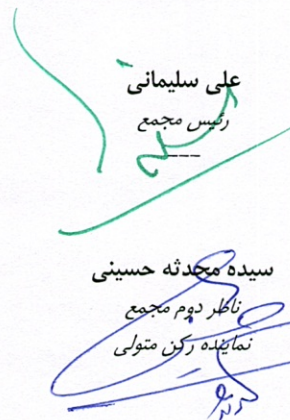 علی سلیمانی
رئیس مجمع
سیده محدثه حسینی
ناظر دوم مجمع
نماینده رکن متولی